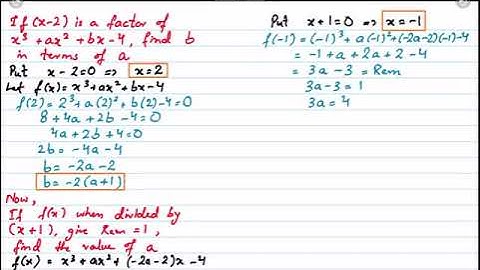 If (x-2) is a factor of
x³ + ax² + bx - 4, find b
in terms of a
Put x - 2 = 0 => x = 2
Let f(x) = x³ + ax² + bx - 4
f(2) = 2³ + a(2)² + b(2) - 4 = 0
8 + 4a + 2b - 4 = 0
4a + 2b + 4 = 0
2b = -4a - 4
b = -2a - 2
b = -2(a+1)
Now,
If f(x) when divided by
(x+1), give Rem = 1,
find the value of a
f(x) = x³ + ax² + (-2a-2)x - 4
Put x + 1 = 0 => x = -1
f(-1) = (-1)³ + a(-1)² + (-2a-2)(-1) - 4
= -1 + a + 2a + 2 - 4
= 3a - 3 = Rem
3a - 3 = 1
3a = 4